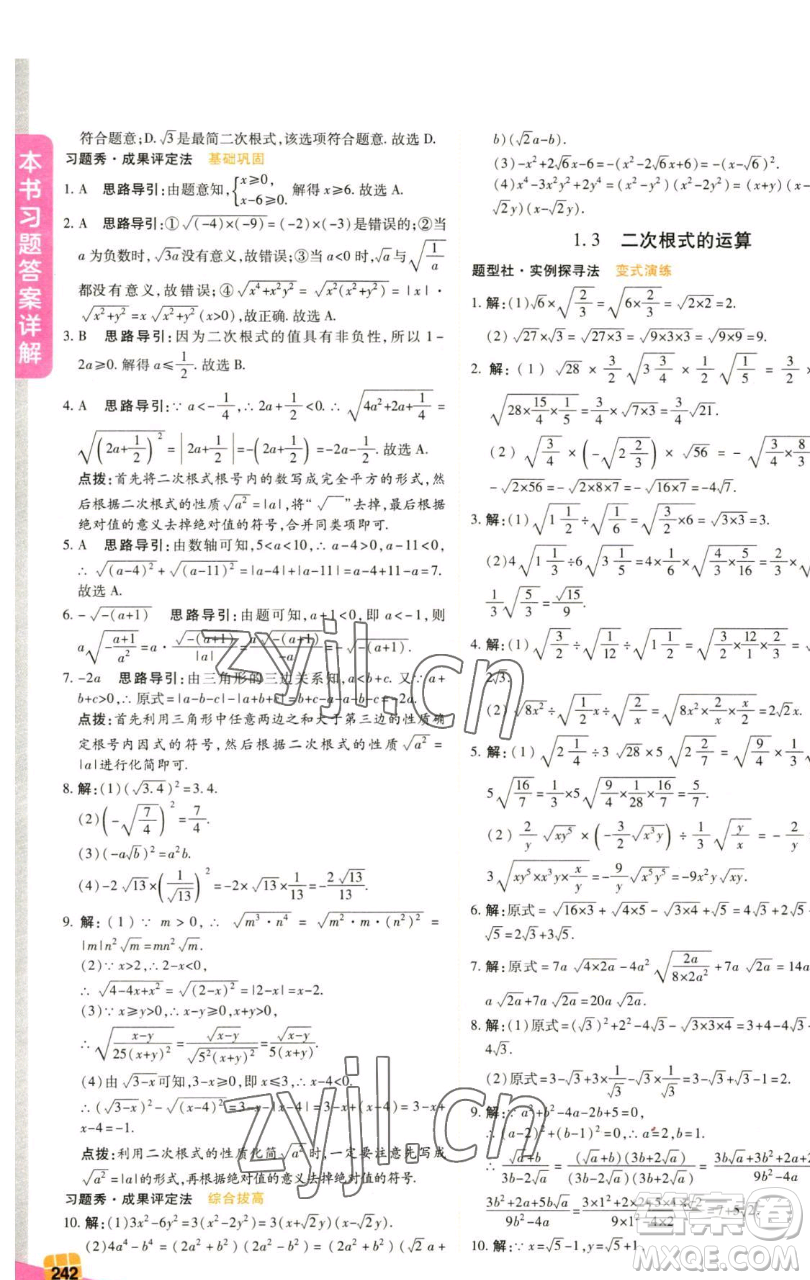 本书习题答案详解
符合题意;D. √3是最简二次根式,该选项符合题意. 故选 D.
习题秀·成果评定法 基础巩固
1. A 思路导引:由题意知,{x≥0, x-6≥0. 解得 x≥6. 故选 A.
2. A 思路导引:①√((-4)×(-9))=(-2)×(-3)是错误的;②当
a 为负数时,√(3a)没有意义,故错误;③当 a<0 时,√a与√(1/a)
都没有意义,故错误;④√(x⁴+x²y²)=√(x²(x²+y²))=|x|·
√(x²+y²)=x√(x²+y²)(x>0),故正确. 故选 A.
3. B 思路导引:因为二次根式的值具有非负性,所以 1-
2a≥0. 解得 a≤1/2. 故选 B.
4. A 思路导引:∵a<-1/4,∴2a+1/2<0. ∴√(4a²+2a+1/4)=
√((2a+1/2)²)=|2a+1/2|=-(2a+1/2)=-2a-1/2. 故选 A.
点拨:首先将二次根式根号内的数写成完全平方的形式,然
后根据二次根式的性质√(a²)=|a|,将“√ ”去掉,最后根据
绝对值的意义去掉绝对值的符号,合并同类项即可.
5. A 思路导引:由数轴可知,5<a<10,∴a-4>0,a-11<0,
∴√((a-4)²)+√((a-11)²)=|a-4|+|a-11|=a-4+11-a=7.
故选 A.
6. -√(-(a+1)) 思路导引:由题可知,a+1<0,即 a<-1,则
a√(-(a+1)/a²)=a·√(-(a+1))/|a|=a·√(-(a+1))/(-a)=-√(-(a+1)).
7. -2a 思路导引:由三角形的三边关系知,a<b+c. 又∵a+
b+c>0,∴原式=|a-b-c|-|a+b+c|=b+c-a-a-b-c=-2a.
点拨:首先利用三角形中任意两边之和大于第三边的性质确
定根号内因式的符号,然后根据二次根式的性质√(a²)=
|a|进行化简即可.
8. 解:(1)(√3.4)²=3.4.
(2)(-√(7/4))²=7/4.
(3)(-a√b)²=a²b.
(4)-2√13×(1/√13)²=-2×√13×1/13=-2√13/13
9. 解:(1)∵m>0,∴√(m³·n⁴)=√(m²·m·(n²)²)=
|m|n²√m=mn²√m.
(2)∵x>2,∴2-x<0,
∴√(4-4x+x²)=√((2-x)²)=|2-x|=x-2.
(3)∵x≥y>0,
∴√((x-y)/(25(x+y)²))=√(x-y)/√(5²(x+y)²)=√(x-y)/(5(x+y)).
(4)由√(3-x)可知,3-x≥0,即 x≤3,∴x-4<0.
∴(√(3-x))²-√((x-4)²)=3-x-|x-4|=3-x+
x-4=-1.
点拨:利用二次根式的性质化简√(a²)时,一定要先根据
√(a²)=|a|的形式,再根据绝对值的意义去掉绝对值的符号.
习题秀·成果评定法 综合拔高
10. 解:(1)3x²-6y²=3(x²-2y²)=3(x+√2y)(x-√2y).
(2)4a⁴-b⁴=(2a²+b²)(2a²-b²)=(2a²+b²)(√2a+
242
b)(√2a-b).
(3)-x²+2√6x-6=-(x²-2√6x+6)=-(x-√6)².
(4)x⁴-3x²y²+2y⁴=(x²-y²)(x²-2y²)=(x+y)(x-
√2y)(x-√2y).
1.3 二次根式的运算
题型社·实例探寻法 变式演练
1. 解:(1)√6×√(2/3)=√(6×2/3)=√(2×2)=2.
(2)√27×√3=√(27×3)=√(9×3×3)=9.
2. 解:(1)√28×3/2√(3 3/4)×1/2√(1/5)=3/2×
√(28×15/4×1/5)=3/4×√(7×3)=3/4√21.
(2)√(3/4)×(-√(2 2/3))×√56=-√(3/4×8/3
-√(2×56)=-√(2×8×7)=-√(16×7)=-4√7.
3. 解:(1)√(1 1/2)÷√(1/6)=√(3/2×6)=√(3×3)=3.
(2)4√(1 1/4)÷6√(3/4)
1/3√(5/3)=√15/9.
4. 解:(1)√(3/2)÷√(1/12)÷√(1 1/2)=√(3/2×12/1×2
2√3.
(2)√(8x²)÷√(1/2x)÷√(2/x)=√(8x²×2/x×x/2)=2√2x.
5. 解:(1)√(2 1/4)÷3√28×5√(2 2/7)=√(9/4)×1
5√(16/7)=1/3×5√(9/4×1/28×16/7)=5
(2)2/y√(xy⁵)×(-3/2√(x³y))÷1/3√(y/x)=-
3√(xy⁵×x³y×x/y)=-9/y√(x⁵y⁵)=-9x²y√(xy).
6. 解:原式=√(16×3)+√(4×5)-√(3×4)+√5=4
√5=2√3+3√5.
7. 解:原式=7a√(4×2a)-4a²√(2a/(8×2a²))+7a√(2a)=14a
a√(2a)+7a√(2a)=20a√(2a).
8. 解:(1)原式=(√3)²+2²-4√3-√(3×3×4)=3+4-4√3-
4√3.
(2)原式=3-√3+√3×1/√3-√3×1/√3=3-1=2.
9. 解:∵a²+b²-4a-2b+5=0,
∴(a-2)²+(b-1)²=0,∴a=2,b=1.
∴(√a+b)/(3b-2√a)=(√a+b)(3b+2√a)/((3b-2√a)(3b+2√a))=(3b√a+3b²+2a+2/(9b²-4a
(3b²+2a+5b√a)/(9b²-4a)
10. 解:x=√5-1,y=√5+1
答案圈
MXQE.COM
zyjl.cn
zyjl.cn